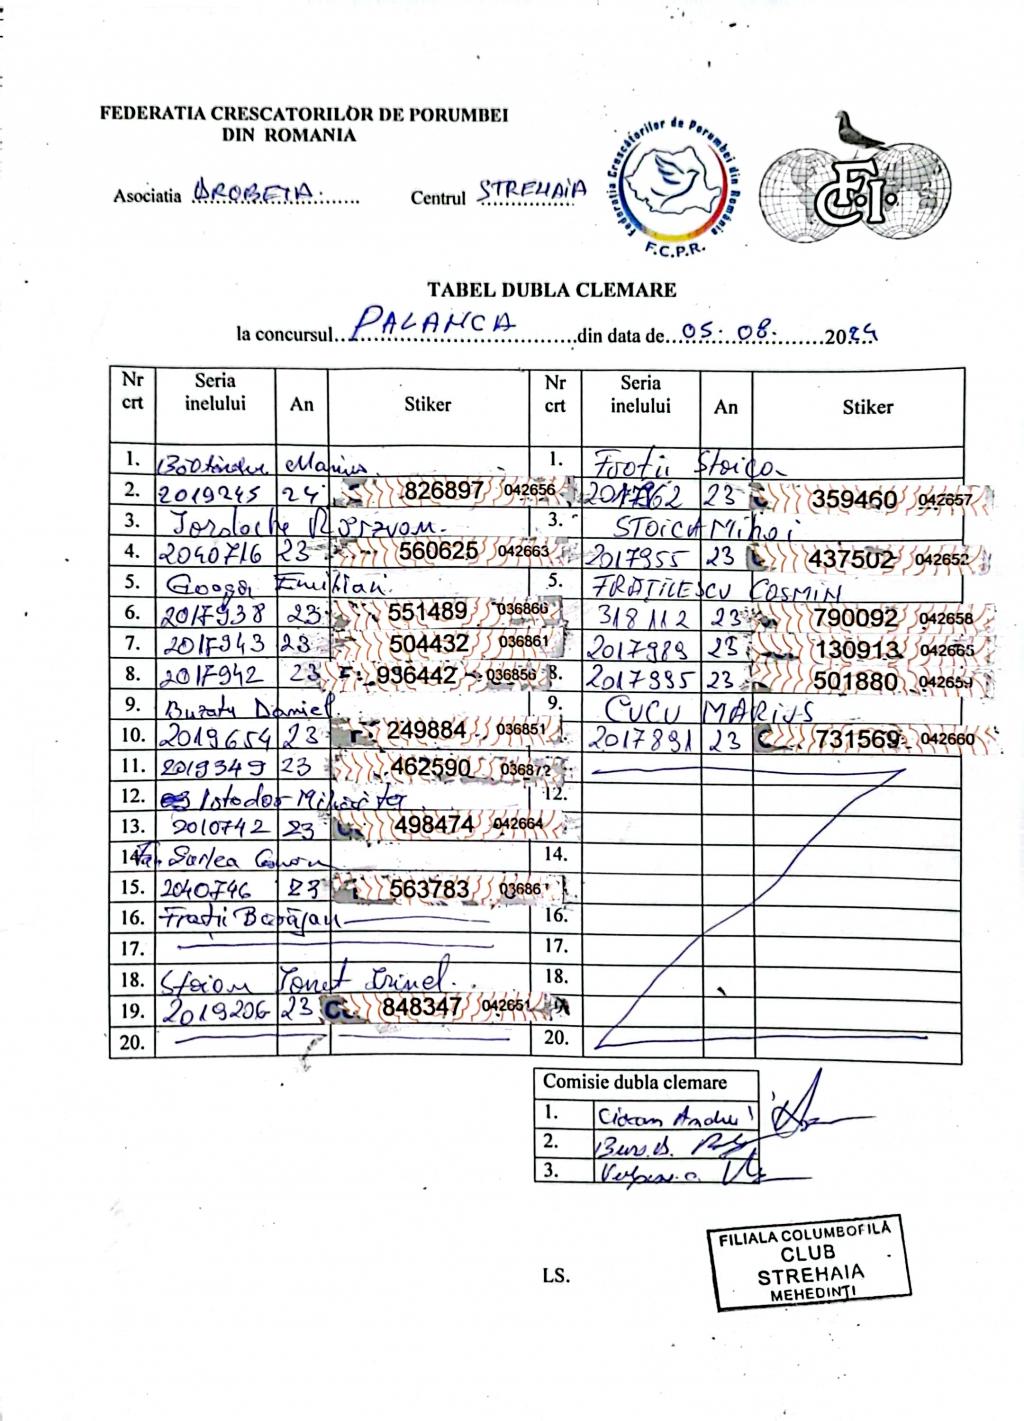 FEDERATIA CRESCATORILOR DE PORUMBEI
DIN ROMANIA
Asociatia DROBETA Centrul STREHAIA
Federatia Crescătorilor de Porumbei din România
F.C.P.R.
F.C.I.
TABEL DUBLA CLEMARE
la concursul PALANCA din data de 05.08. 2024
Nr crt Seria inelului An Stiker Nr crt Seria inelului An Stiker
1. Marius 1. Stoica
2. 2019245 24 826897 042656 2017962 23 359460 042657
3. Iordache Răzvan 3. STOICA Mihai
4. 2040716 23 560625 042663 2017955 23 437502 042652
5. Goaga Emilian 5. FRATILESCU COSMIN
6. 2017938 23 551489 036866 318112 23 790092 042658
7. 2017943 23 504432 036861 2017989 23 130913 042665
8. 2017942 23 936442 036856 8. 2017995 23 501880 042659
9. Buzatu Daniel 9. CUCU MARIUS
10. 2019654 23 249884 036851 2017891 23 731569 042660
11. 2019349 23 462590 036872
12. Istodor Mihaita 12.
13. 2010742 23 498474 042664
14. Surlea 14.
15. 2040746 23 563783 03686
16. Fratii 16.
17. 17.
18. Stoian Ionut Irinel 18.
19. 2019206 23 848347 042651
20. 20.
Comisie dubla clemare
1. Ciocan Andrei
2.
3.
LS.
FILIALA COLUMBOFILĂ
CLUB
STREHAIA
MEHEDINȚI